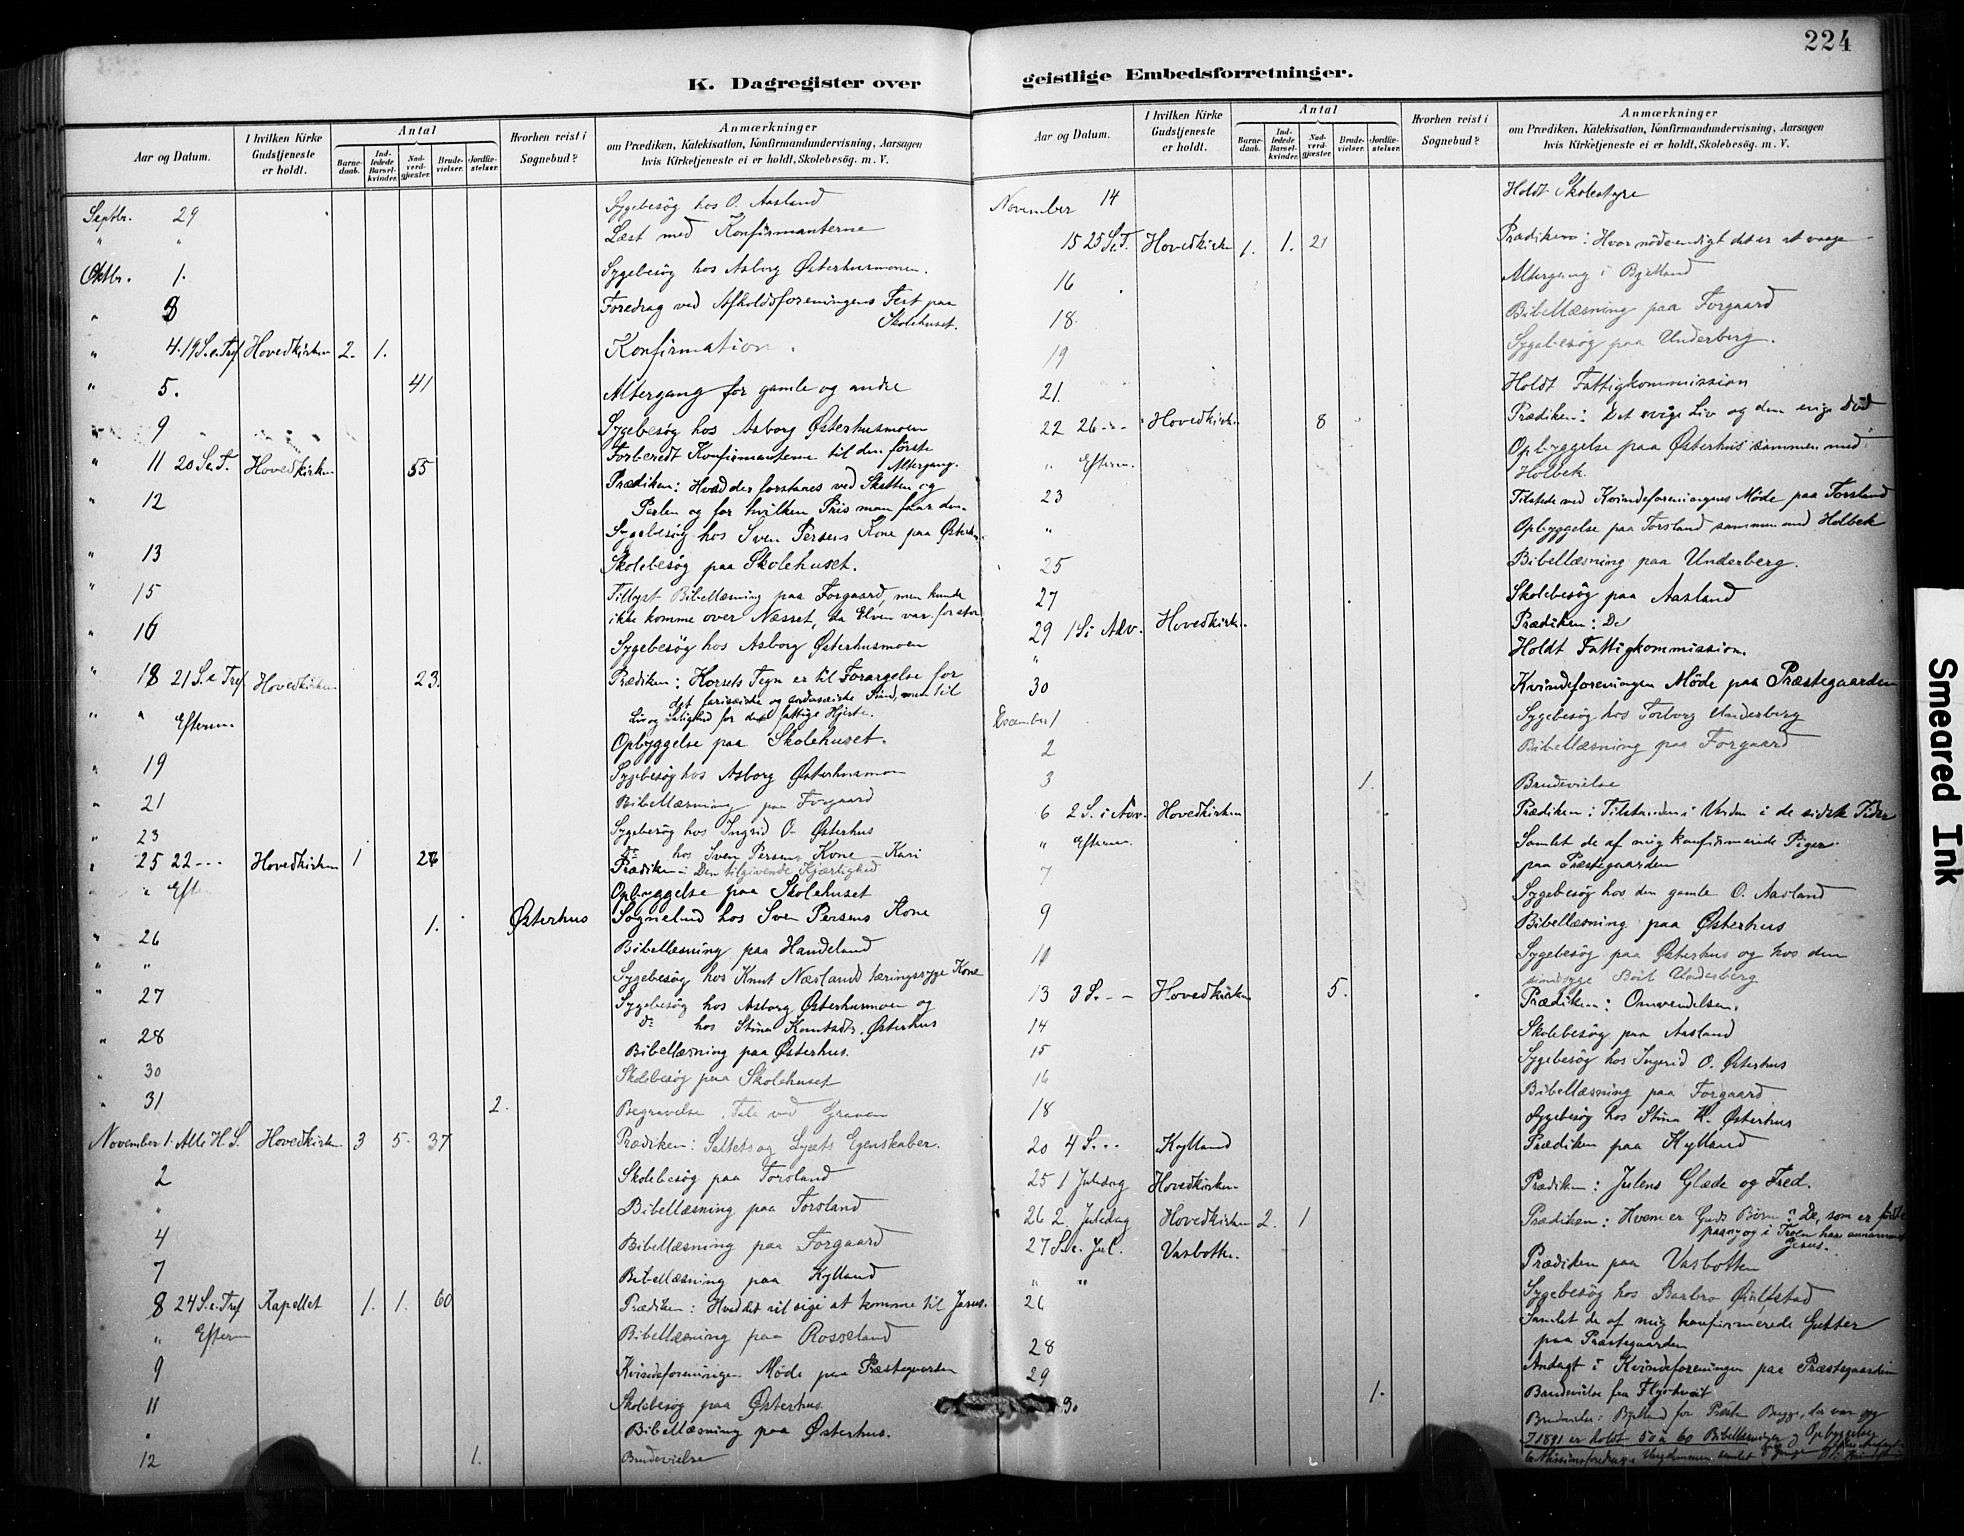 224
K. Dagregister over geistlige Embedsforretninger.
Aar og Datum.
I hvilken Kirke Gudstjeneste er holdt.
Antal
Barnedaab.
Indledede Barselkvinder.
Nadverdgjæster.
Brudevielser.
Jordfæstelser.
Hvorhen reist i Sognebud?
Anmærkninger
om Prædiken, Katekisation, Konfirmandundervisning, Aarsagen
hvis Kirketjeneste ei er holdt, Skolebesøg. m. V.
Septbr. 29 Sygebesøg hos O. Aasland
" " Læst med Konfirmanterne
Oktbr. 1. Sygebesøg hos Asborg Østerhusmoen.
" 3 Foredrag ved Afholdsforeningens Fest paa
Skolehuset.
" 4. 19 S.e.Tref Hovedkirken 2. 1. Konfirmation.
" 5. 41 Altergang for gamle og andre
" 9 Sygebesøg hos Asborg Østerhusmoen
Forberedt Konfirmanterne til den første
Altergang.
" 11 20 S.e.T. Hovedkirken 55 Prædiken: Hvad der forstaaes ved Skatten og
Perlen og for hvilken Pris man faar den.
" 12 Sygebesøg hos Sven Persens Kone paa Østerh.
" 13 Skolebesøg paa Skolehuset.
" 15 Tillyst Bibellæsning paa Forgaard, men kunde
ikke komme over Næsset, da Elven var for stor
" 16 Sygebesøg hos Asborg Østerhusmoen
" 18 21 S.e Tref Hovedkirken 23. Prædiken: Korsets Tegn er til Forargelse for
det farisæiske og sadusæiske Sind, men til
Liv og Salighed for det fattige Hjerte.
" " Efterm. Opbyggelse paa Skolehuset.
" 19 Sygebesøg hos Asborg Østerhusmoen
" 21 Bibellæsning paa Forgaard
" 23 Sygebesøg hos Ingrid O. Østerhus
Do hos Sven Persens Kone Kari
" 25 22 - - - Hovedkirken 1 26 Prædiken: Den tilgivende Kjærlighed
" " Eft. Opbyggelse paa Skolehuset
1. Østerhus Sognebud hos Sven Persens Kone
" 26 Bibellæsning paa Handeland
" " Sygebesøg hos Knut Næslands tæringssyge Kone
" 27 Sygebesøg hos Asborg Østerhusmoen og
Do hos Stina Knutsdtr. Østerhus
" 28 Bibellæsning paa Østerhus.
" 30 Skolebesøg paa Skolehuset
" 31 2. Begravelse. Tale ved Graven
November 1. Alle H. S. Hovedkirken 3 5. 37 Prædiken: Saltets og Lysets Egenskaber.
2 Skolebesøg paa Torsland
" Bibellæsning paa Torsland
4 Bibellæsning paa Forgaard
7 Bibellæsning paa Kylland
8 24 S.e.Tref Kapellet 1. 1. 60 Prædiken: Hvad det vil sige at komme til Jesus.
" Efterm Bibellæsning paa Rosseland
9 Kvindeforeningen Møde paa Præstegaarden
11 Skolebesøg paa Østerhus
" Bibellæsning paa Østerhus.
12 1. Brudevielse
Aar og Datum.
I hvilken Kirke Gudstjeneste er holdt.
Antal
Barnedaab.
Indledede Barselkvinder.
Nadverdgjæster.
Brudevielser.
Jordfæstelser.
Hvorhen reist i Sognebud?
Anmærkninger
om Prædiken, Katekisation, Konfirmandundervisning, Aarsagen
hvis Kirketjeneste ei er holdt, Skolebesøg. m. V.
November 14 Holdt Skolestyre
15 25 S.e.T. Hovedkirken 1. 1. 21 Prædiken: Hvor nødvendigt det er at vaage
16 Altergang i Bjelland
18. Bibellæsning paa Forgaard
19 Sygebesøg paa Underberg.
21. Holdt Fattigkommission
22 26 - - - Hovedkirken 8 Prædiken: Det evige Liv og den evige Død
" Efterm. Opbyggelse paa Østerhus sammen med
Holbek.
23 Tilstede ved Kvindeforeningens Møde paa Torsland
" Opbyggelse paa Torsland sammen med Holbek
25 Bibellæsning paa Underberg.
27 Skolebesøg paa Aasland
29 1 S i Adv. Hovedkirken Prædiken: De
" Holdt Fattigkommission.
30 Kvindeforeningen Møde paa Præstegaarden
December 1 Sygebesøg hos Torborg Underberg
2 Bibellæsning paa Forgaard
3 1. Brudevielse
6 2 S. i Adv. Hovedkirken Prædiken: Tilstanden i Verden i de sidste Tider
" Efterm. Samlet de af mig konfirmerede Piger
paa Præstegaarden
7 Sygebesøg hos den gamle O. Aasland
9 Bibellæsning paa Østerhus
10 Sygebesøg paa Østerhus og hos den
sindsyge Berit Underberg
13 3 S. - - Hovedkirken 5. Prædiken: Omvendelsen.
14 Skolebesøg paa Aasland
15 Sygebesøg hos Ingerid O. Østerhus
16 Bibellæsning paa Forgaard
18 Sygebesøg hos Stina K. Østerhus
20 4 S. - - Kylland Prædiken paa Kylland
25 1 Juledag Hovedkirken Prædiken: Julens Glæde og Fred.
26 2. Juledag Hovedkirken 2. 1 Prædiken: Hvem er Guds Børn? De, som er fødte
paany og i Troen har annammet
Jesus.
27 S.e. Jul. Vasbotten. Prædiken paa Vasbotten
" " Sygebesøg hos Barbro
26 Samlet de af mig konfirmerede Gutter
paa Præstegaarden
28 Andagt i Kvindeforeningen paa Præstegaarden
29 1. Brudevielse fra
30
I 1891 er holdt 50 a 60 Bibellæsninger og Opbyggelser
Smeared Ink